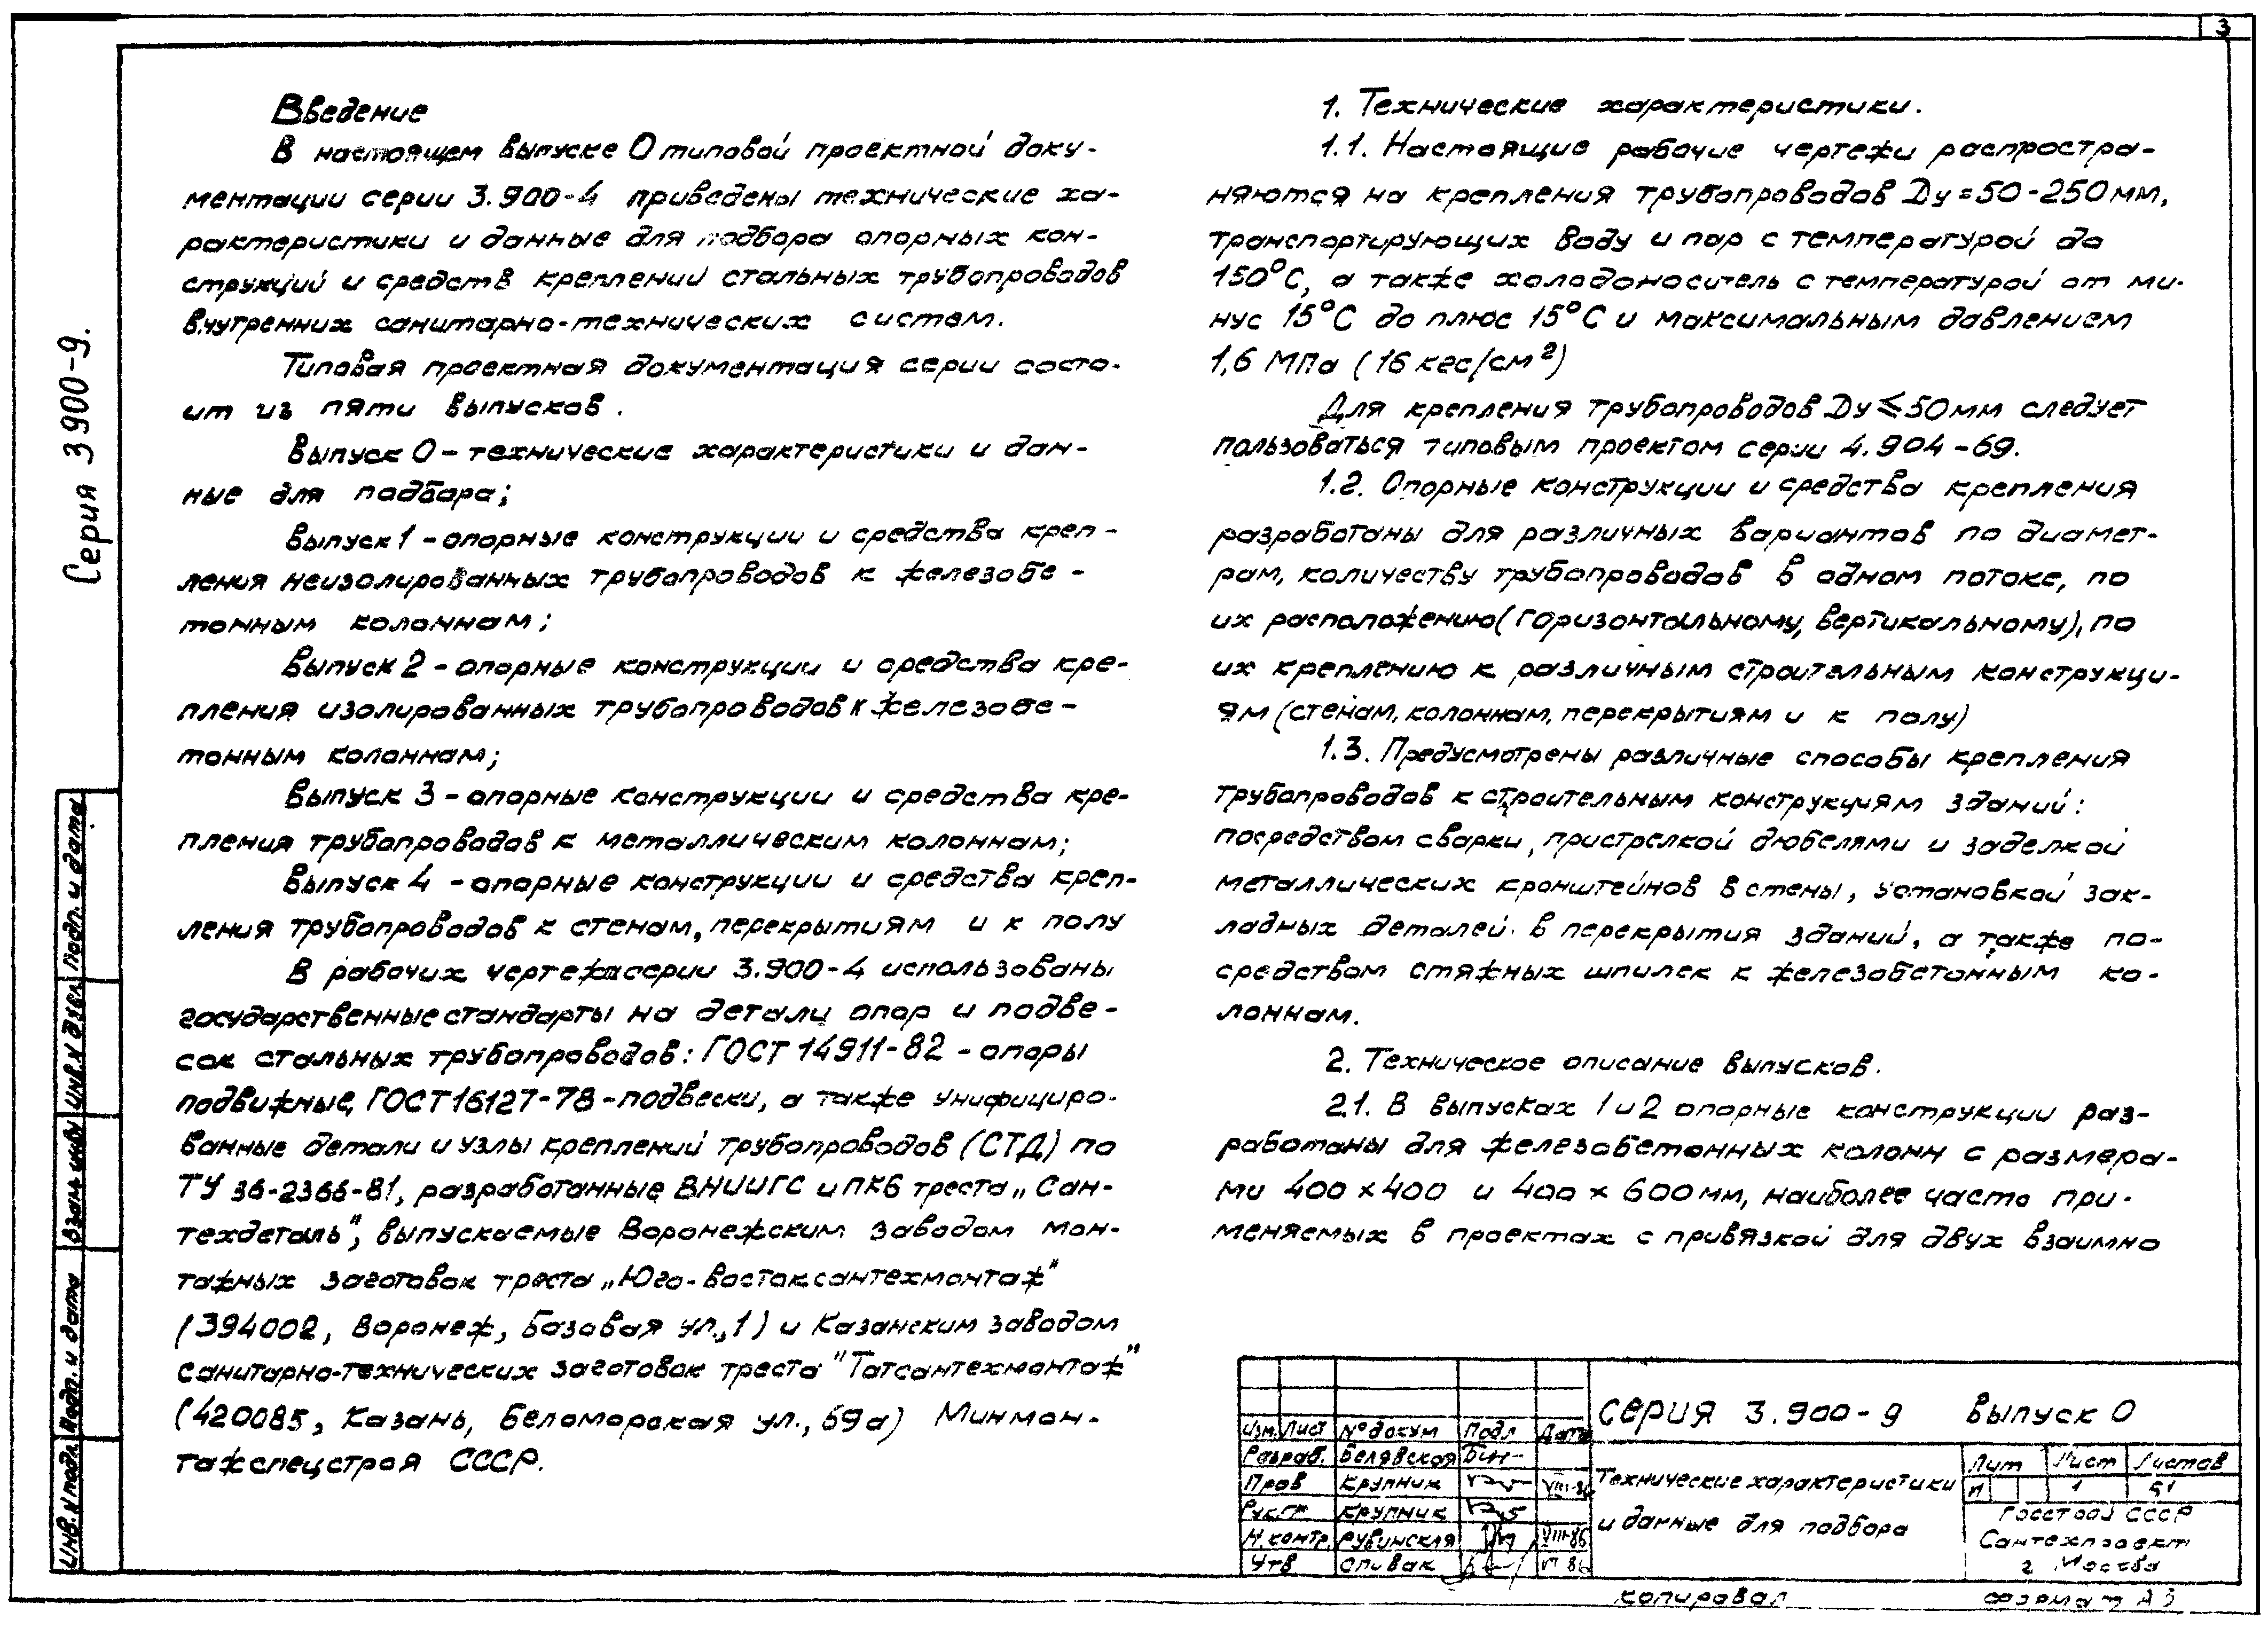 3
Серия 3.900-9.
Введение
В настоящем выпуске 0 типовой проектной доку-
ментации серии 3.900-4 приведены технические ха-
рактеристики и данные для подбора опорных кон-
струкций и средств креплений стальных трубопроводов
внутренних санитарно-технических систем.
Типовая проектная документация серии состо-
ит из пяти выпусков.
Выпуск 0 – технические характеристики и дан-
ные для подбора;
Выпуск 1 – опорные конструкции и средства креп-
ления неизолированных трубопроводов к железобе-
тонным колоннам;
Выпуск 2 – опорные конструкции и средства кре-
пления изолированных трубопроводов к железобе-
тонным колоннам;
Выпуск 3 – опорные конструкции и средства кре-
пления трубопроводов к металлическим колоннам;
Выпуск 4 – опорные конструкции и средства креп-
ления трубопроводов к стенам, перекрытиям и к полу
В рабочих чертежах серии 3.900-4 использованы
государственные стандарты на детали опор и подве-
сок стальных трубопроводов: ГОСТ 14911-82 – опоры
подвижные, ГОСТ 16127-78 – подвески, а также унифициро-
ванные детали и узлы креплений трубопроводов (СТД) по
ТУ 36-2366-81, разработанные ВНИИГС и ПКБ треста „Сан-
техдеталь", выпускаемые Воронежским заводом мон-
тажных заготовок треста „Юго-востоксантехмонтаж"
(394002, Воронеж, Базовая ул., 1) и Казанским заводом
санитарно-технических заготовок треста "Татсантехмонтаж"
(420085, Казань, Беломорская ул., 69а) Минмон-
тажспецстроя СССР.
1. Технические характеристики.
1.1. Настоящие рабочие чертежи распростра-
няются на крепления трубопроводов Ду=50-250мм,
транспортирующих воду и пар с температурой до
150°С, а также холодоноситель с температурой от ми-
нус 15°С до плюс 15°С и максимальным давлением
1,6 МПа (16 кгс/см²)
Для крепления трубопроводов Ду≤50мм следует
пользоваться типовым проектом серии 4.904-69.
1.2. Опорные конструкции и средства крепления
разработаны для различных вариантов по диамет-
рам, количеству трубопроводов в одном потоке, по
их расположению (горизонтальному, вертикальному), по
их креплению к различным строительным конструкци-
ям (стенам, колоннам, перекрытиям и к полу)
1.3. Предусмотрены различные способы крепления
трубопроводов к строительным конструкциям зданий:
посредством сварки, пристрелкой дюбелями и заделкой
металлических кронштейнов в стены, установкой зак-
ладных деталей в перекрытия зданий, а также по-
средством стяжных шпилек к железобетонным ко-
лоннам.
2. Техническое описание выпусков.
2.1. В выпусках 1 и 2 опорные конструкции раз-
работаны для железобетонных колонн с размера-
ми 400×400 и 400×600мм, наиболее часто при-
меняемых в проектах с привязкой для двух взаимно
Инв.N подл. Подп. и дата Взам инв N Инв. N дубл. Подп. и дата
Изм. Лист N° докум Подп Дата
Разраб. Белявская
Пров Крупник VIII-86
Рук.гр Крупник
Н.контр. Рубинская VIII-86
Утв Спивак
серия 3.900-9 выпуск 0
Технические характеристики
и данные для подбора
Лит Лист Листов
1 51
Госстрой СССР
Сантехпроект
г Москва
копировал Формат А3